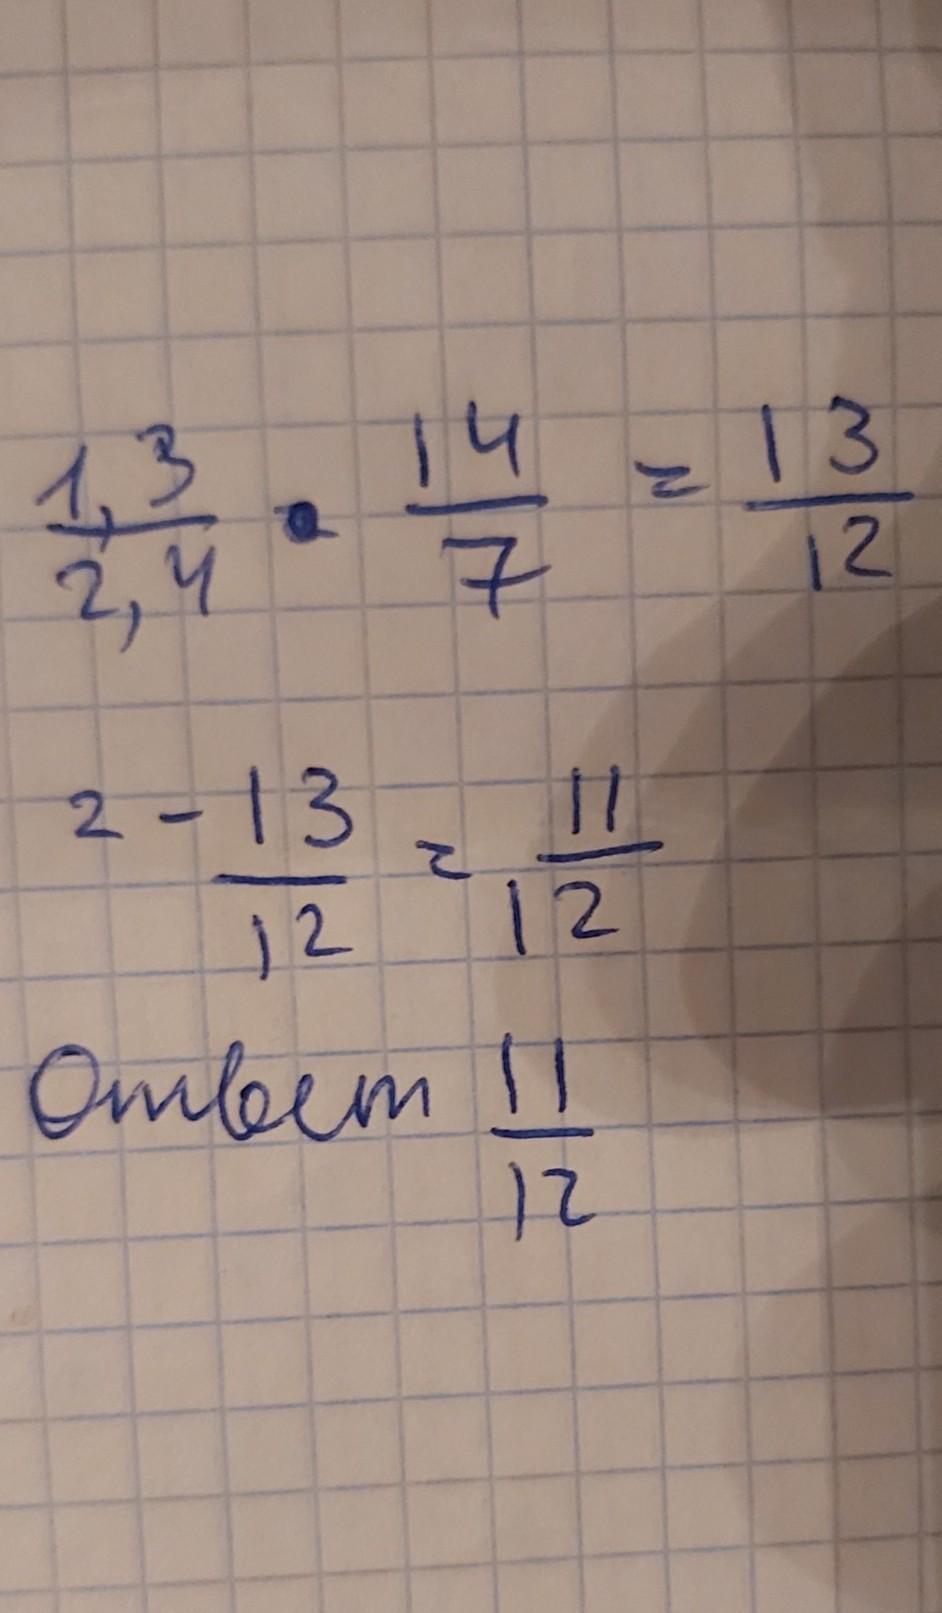 1,3/2,4 · 14/7 = 13/12
2 - 13/12 = 11/12
Ответ 11/12